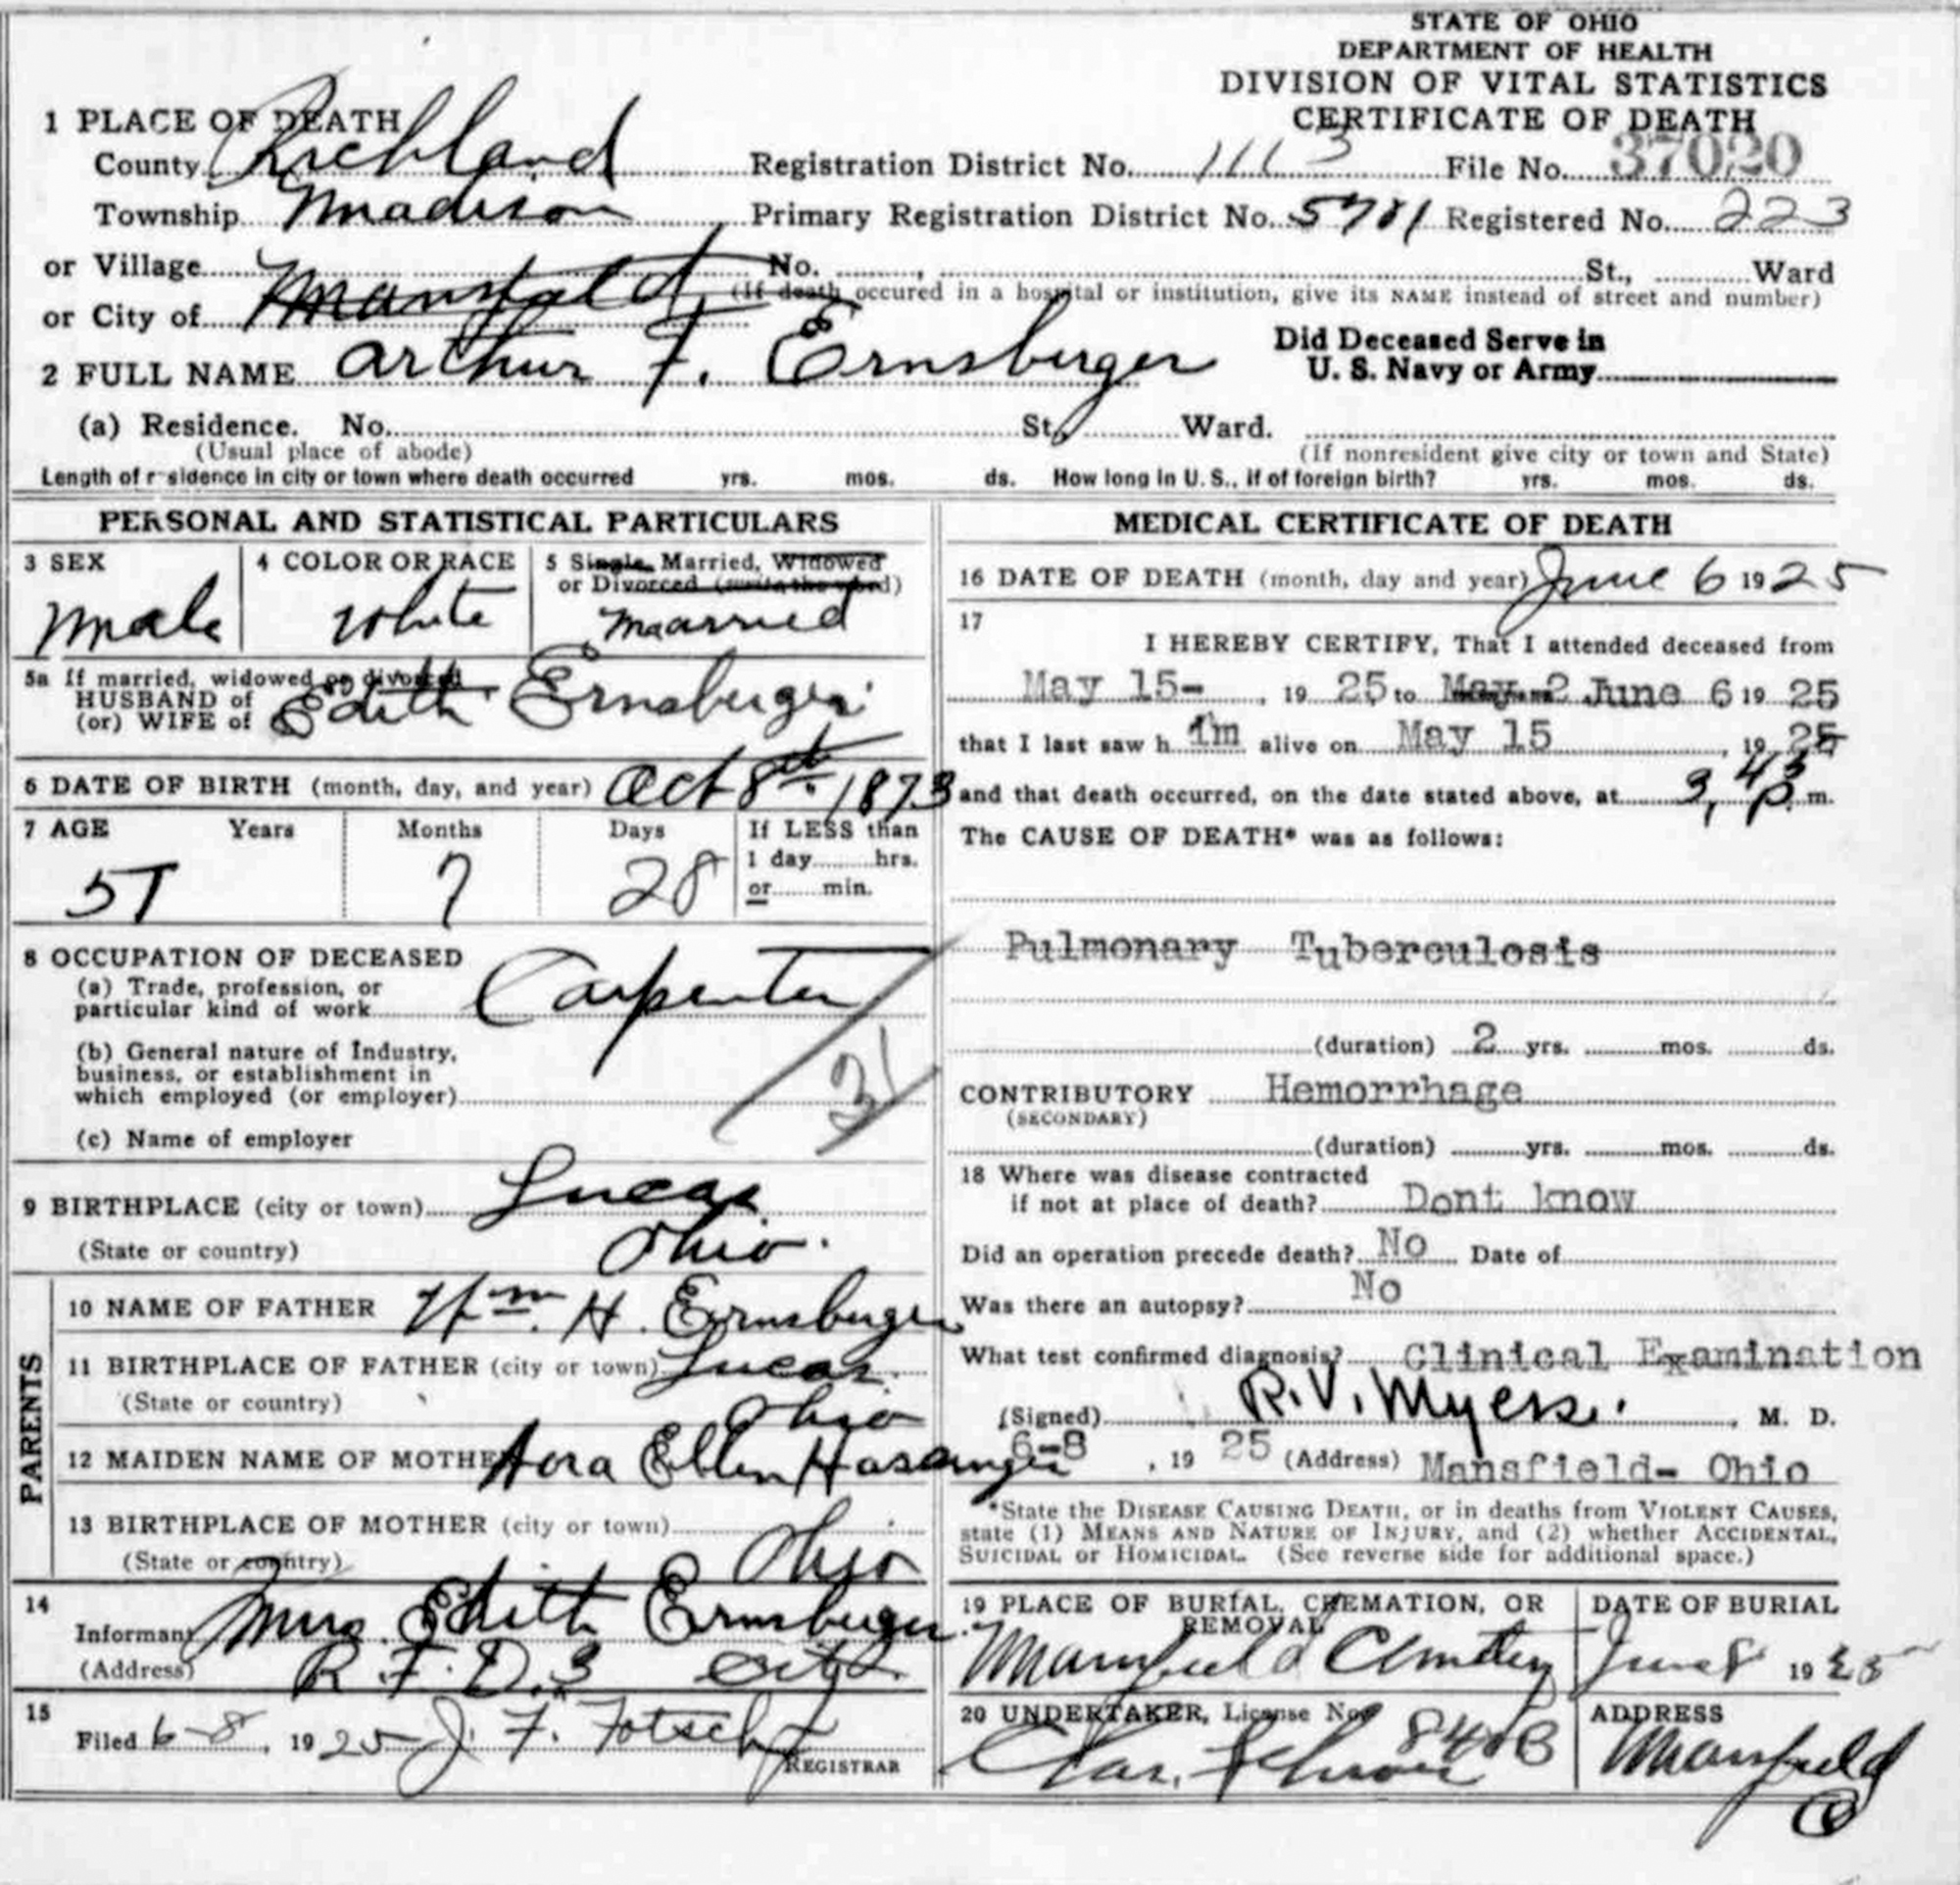 STATE OF OHIO
DEPARTMENT OF HEALTH
DIVISION OF VITAL STATISTICS
CERTIFICATE OF DEATH
1 PLACE OF DEATH
County Richland Registration District No. 1113 File No. 37020
Township Madison Primary Registration District No. 5781 Registered No. 223
or Village No. St., Ward
(If death occured in a hospital or institution, give its NAME instead of street and number)
or City of Mansfield
2 FULL NAME Arthur F. Ernsberger
Did Deceased Serve in
U. S. Navy or Army
(a) Residence. No. St., Ward.
(Usual place of abode) (If nonresident give city or town and State)
Length of residence in city or town where death occurred yrs. mos. ds. How long in U. S., if of foreign birth? yrs. mos. ds.
PERSONAL AND STATISTICAL PARTICULARS
3 SEX 4 COLOR OR RACE 5 Single, Married, Widowed
or Divorced (write the word)
Male White Married
5a If married, widowed or divorced
HUSBAND of
(or) WIFE of Edith Ernsberger
6 DATE OF BIRTH (month, day, and year) Oct 8th, 1873
7 AGE Years Months Days If LESS than
1 day hrs.
or min.
51 7 28
8 OCCUPATION OF DECEASED
(a) Trade, profession, or
particular kind of work Carpenter
(b) General nature of Industry,
business, or establishment in
which employed (or employer)
(c) Name of employer
9 BIRTHPLACE (city or town) Lucas
(State or country) Ohio.
PARENTS
10 NAME OF FATHER Wm. H. Ernsberger
11 BIRTHPLACE OF FATHER (city or town) Lucas
(State or country) Ohio
12 MAIDEN NAME OF MOTHER Ellen
13 BIRTHPLACE OF MOTHER (city or town)
(State or country) Ohio
14
Informant Mrs. Edith Ernsberger
(Address) R. F. D. 3 City
15
Filed 6-8, 1925 J. F. Totsch
REGISTRAR
MEDICAL CERTIFICATE OF DEATH
16 DATE OF DEATH (month, day and year) June 6 1925
17
I HEREBY CERTIFY, That I attended deceased from
May 15-, 19 25 to May 2 June 6 19 25
that I last saw h im alive on May 15, 19 25
and that death occurred, on the date stated above, at 3,45 P. m.
The CAUSE OF DEATH* was as follows:
Pulmonary Tuberculosis
(duration) 2 yrs. mos. ds.
CONTRIBUTORY Hemorrhage
(SECONDARY)
(duration) yrs. mos. ds.
18 Where was disease contracted
if not at place of death? Dont know
Did an operation precede death? No Date of
Was there an autopsy? No
What test confirmed diagnosis? Clinical Examination
(Signed) R. V. Myers, M. D.
6-8, 19 25 (Address) Mansfield- Ohio
*State the DISEASE CAUSING DEATH, or in deaths from VIOLENT CAUSES,
state (1) MEANS AND NATURE OF INJURY, and (2) whether ACCIDENTAL,
SUICIDAL or HOMICIDAL. (See reverse side for additional space.)
19 PLACE OF BURIAL, CREMATION, OR
REMOVAL
Mansfield Cemetery
DATE OF BURIAL
June 8 1925
20 UNDERTAKER, License No.
Chas.
ADDRESS
Mansfield
O